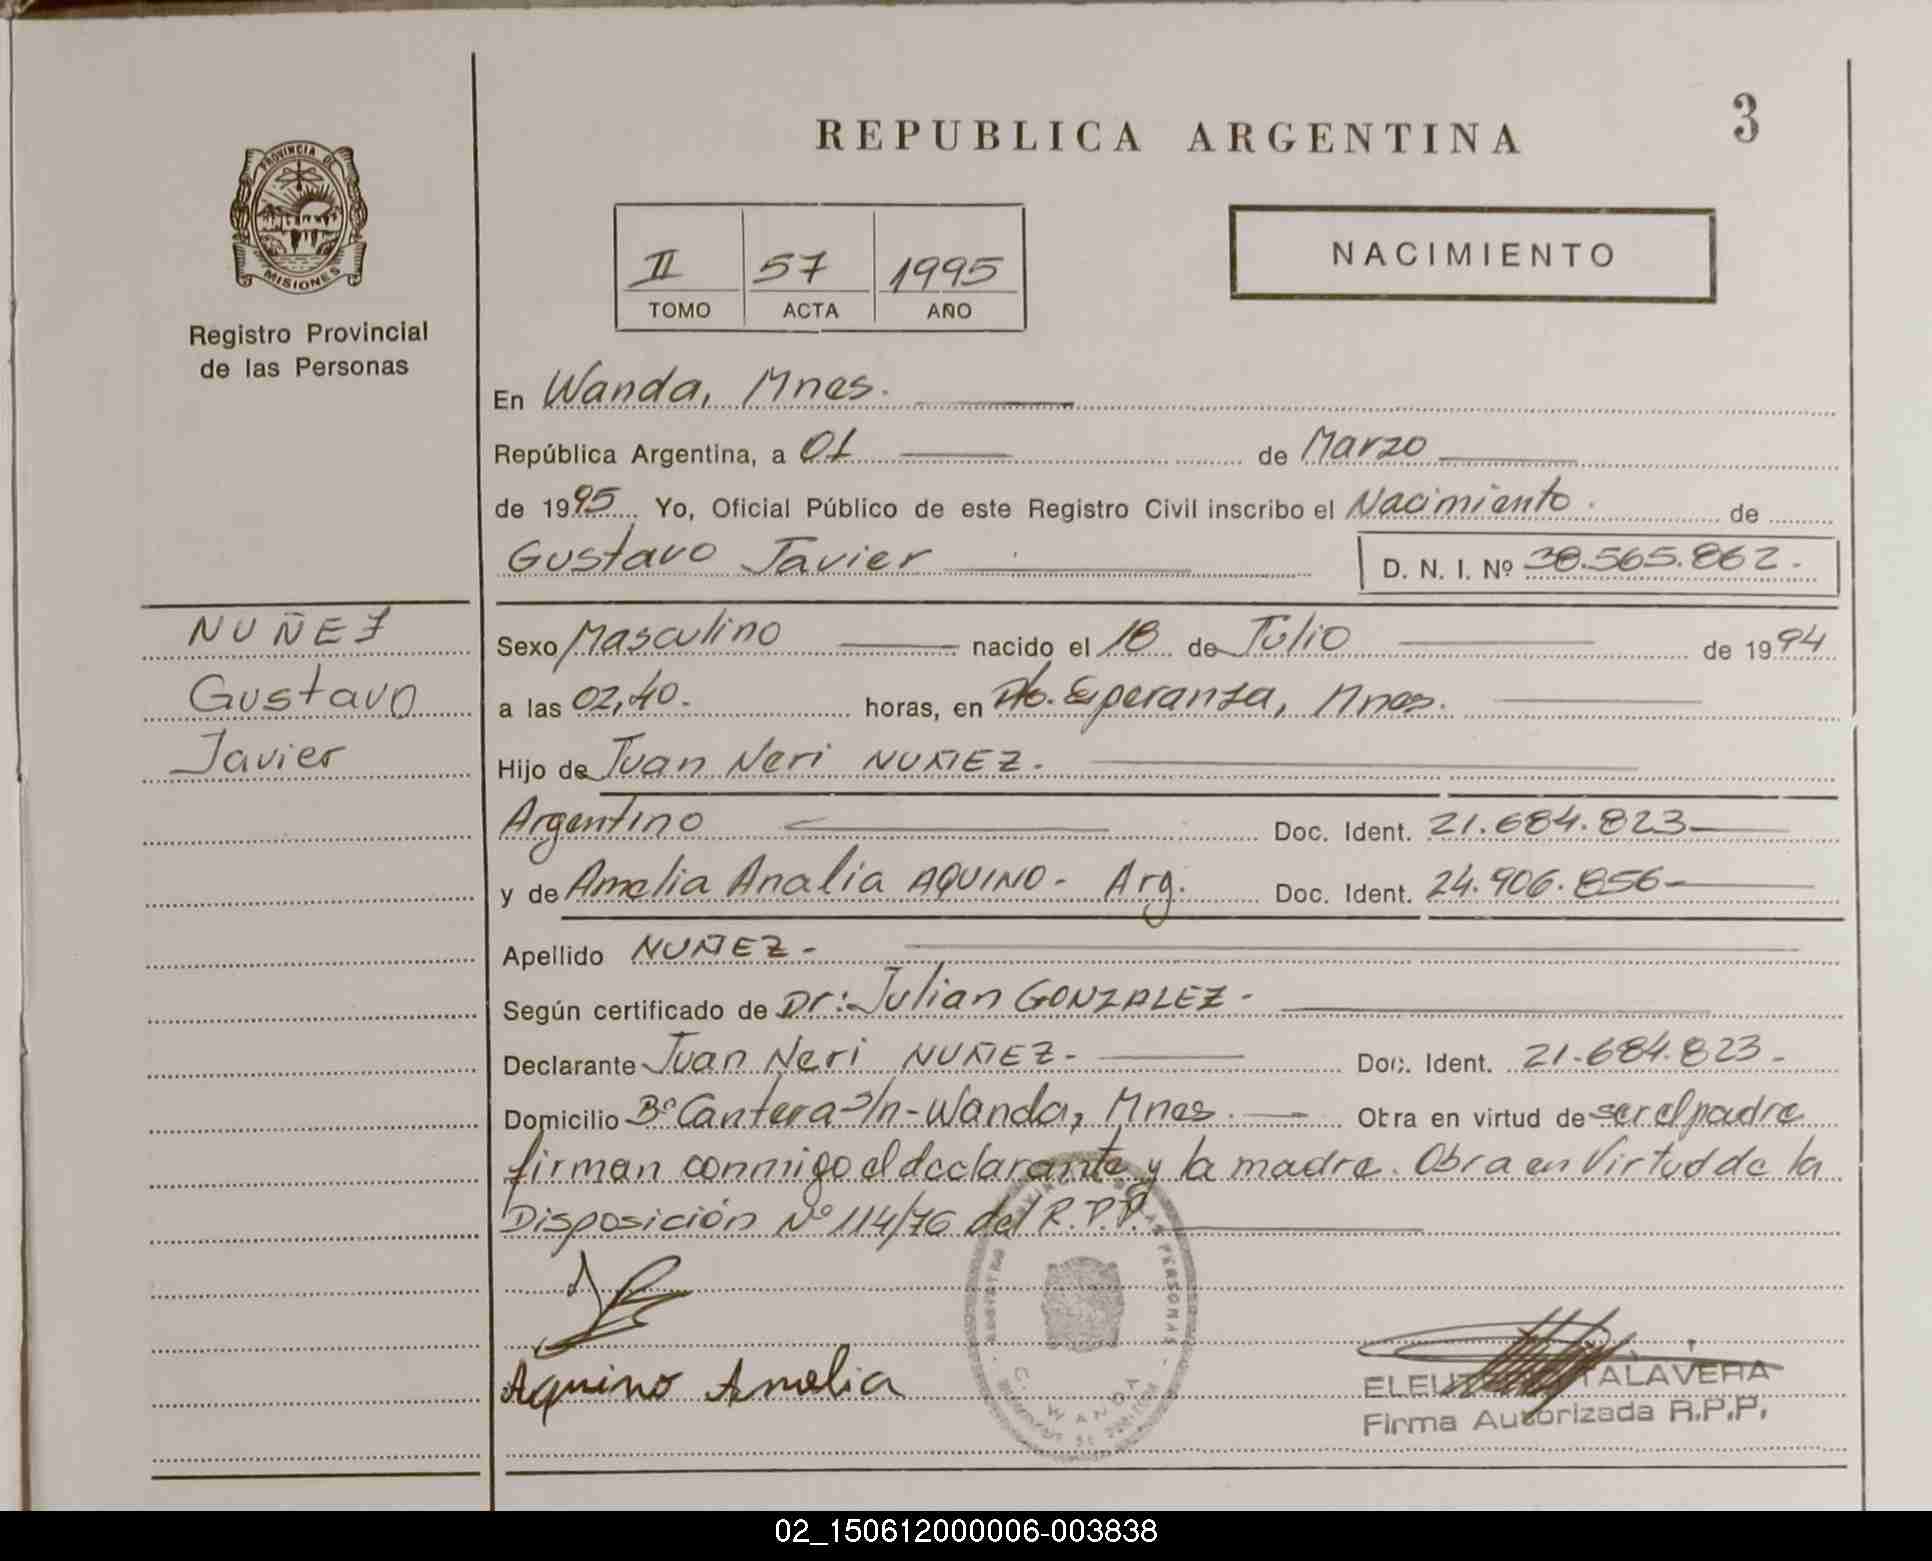 REPUBLICA ARGENTINA
3
PROVINCIA DE
MISIONES
Registro Provincial
de las Personas
II 57 1995
TOMO ACTA AÑO
NACIMIENTO
En Wanda, Mnes.
República Argentina, a 01 de Marzo
de 1995 Yo, Oficial Público de este Registro Civil inscribo el Nacimiento. de
Gustavo Javier D. N. I. Nº 38.565.862.
NUÑEZ
Gustavo
Javier
Sexo Masculino nacido el 18 de Julio de 1994
a las 02,40. horas, en Pto. Esperanza, Mnes.
Hijo de Juan Neri NUÑEZ.
Argentino Doc. Ident. 21.684.823
y de Amelia Analia AQUINO- Arg. Doc. Ident. 24.906.856
Apellido NUÑEZ-
Según certificado de Dr: Julian GONZALEZ-
Declarante Juan Neri NUÑEZ- Doc. Ident. 21.684.823-
Domicilio Bº Cantera S/n-Wanda, Mnes. Obra en virtud de ser el padre
firman conmigo el declarante y la madre. Obra en Virtud de la
Disposición Nº 114/76 del R.P.P.
Aquino Amelia
WANDA
TALAVERA
Firma Autorizada R.P.P.
02_150612000006-003838